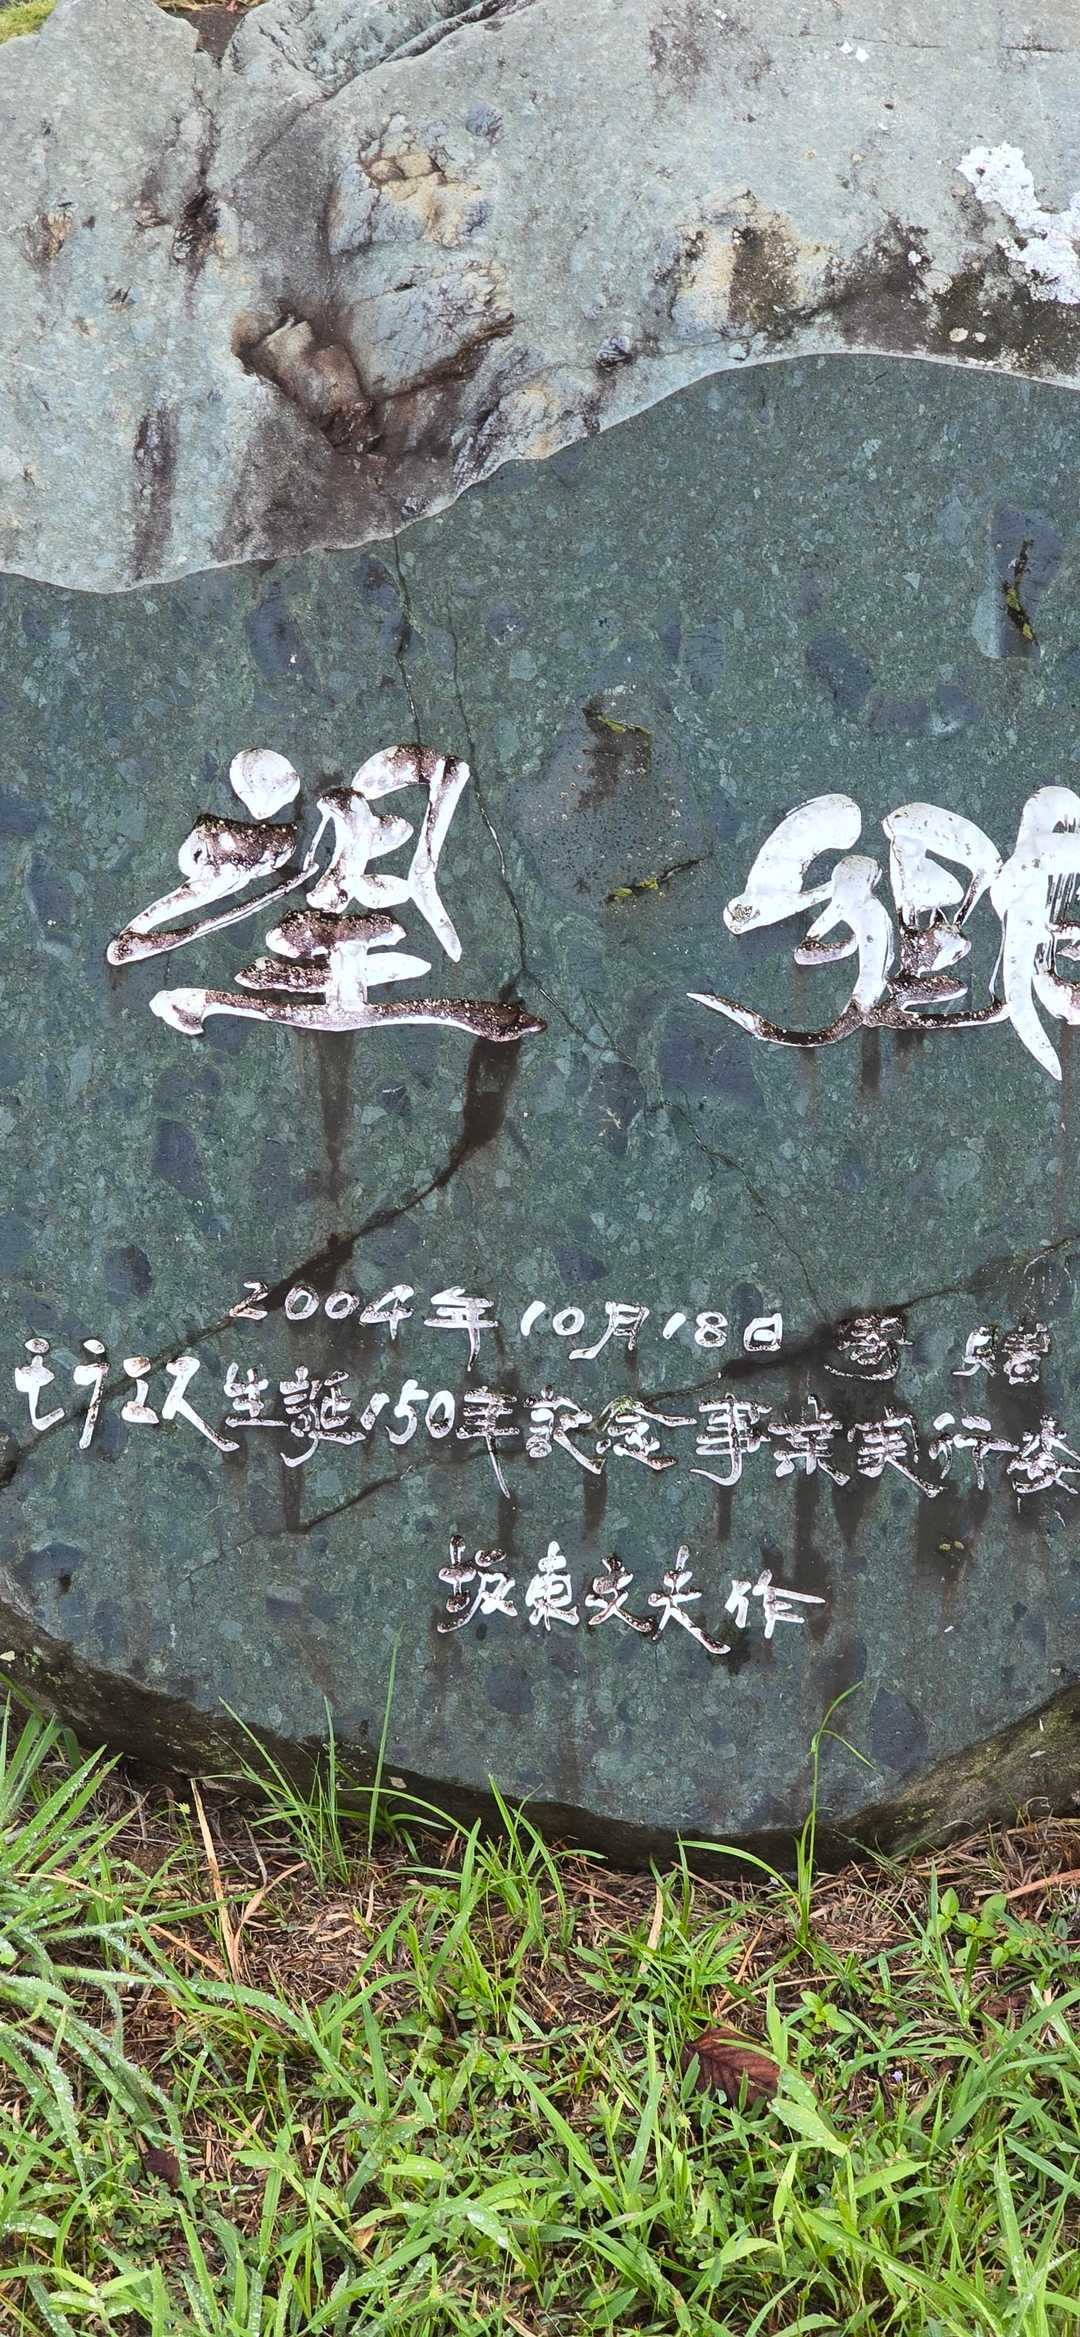 望郷
2004年10月18日 寄贈
モラエス生誕150年記念事業実行委
坂東文夫作